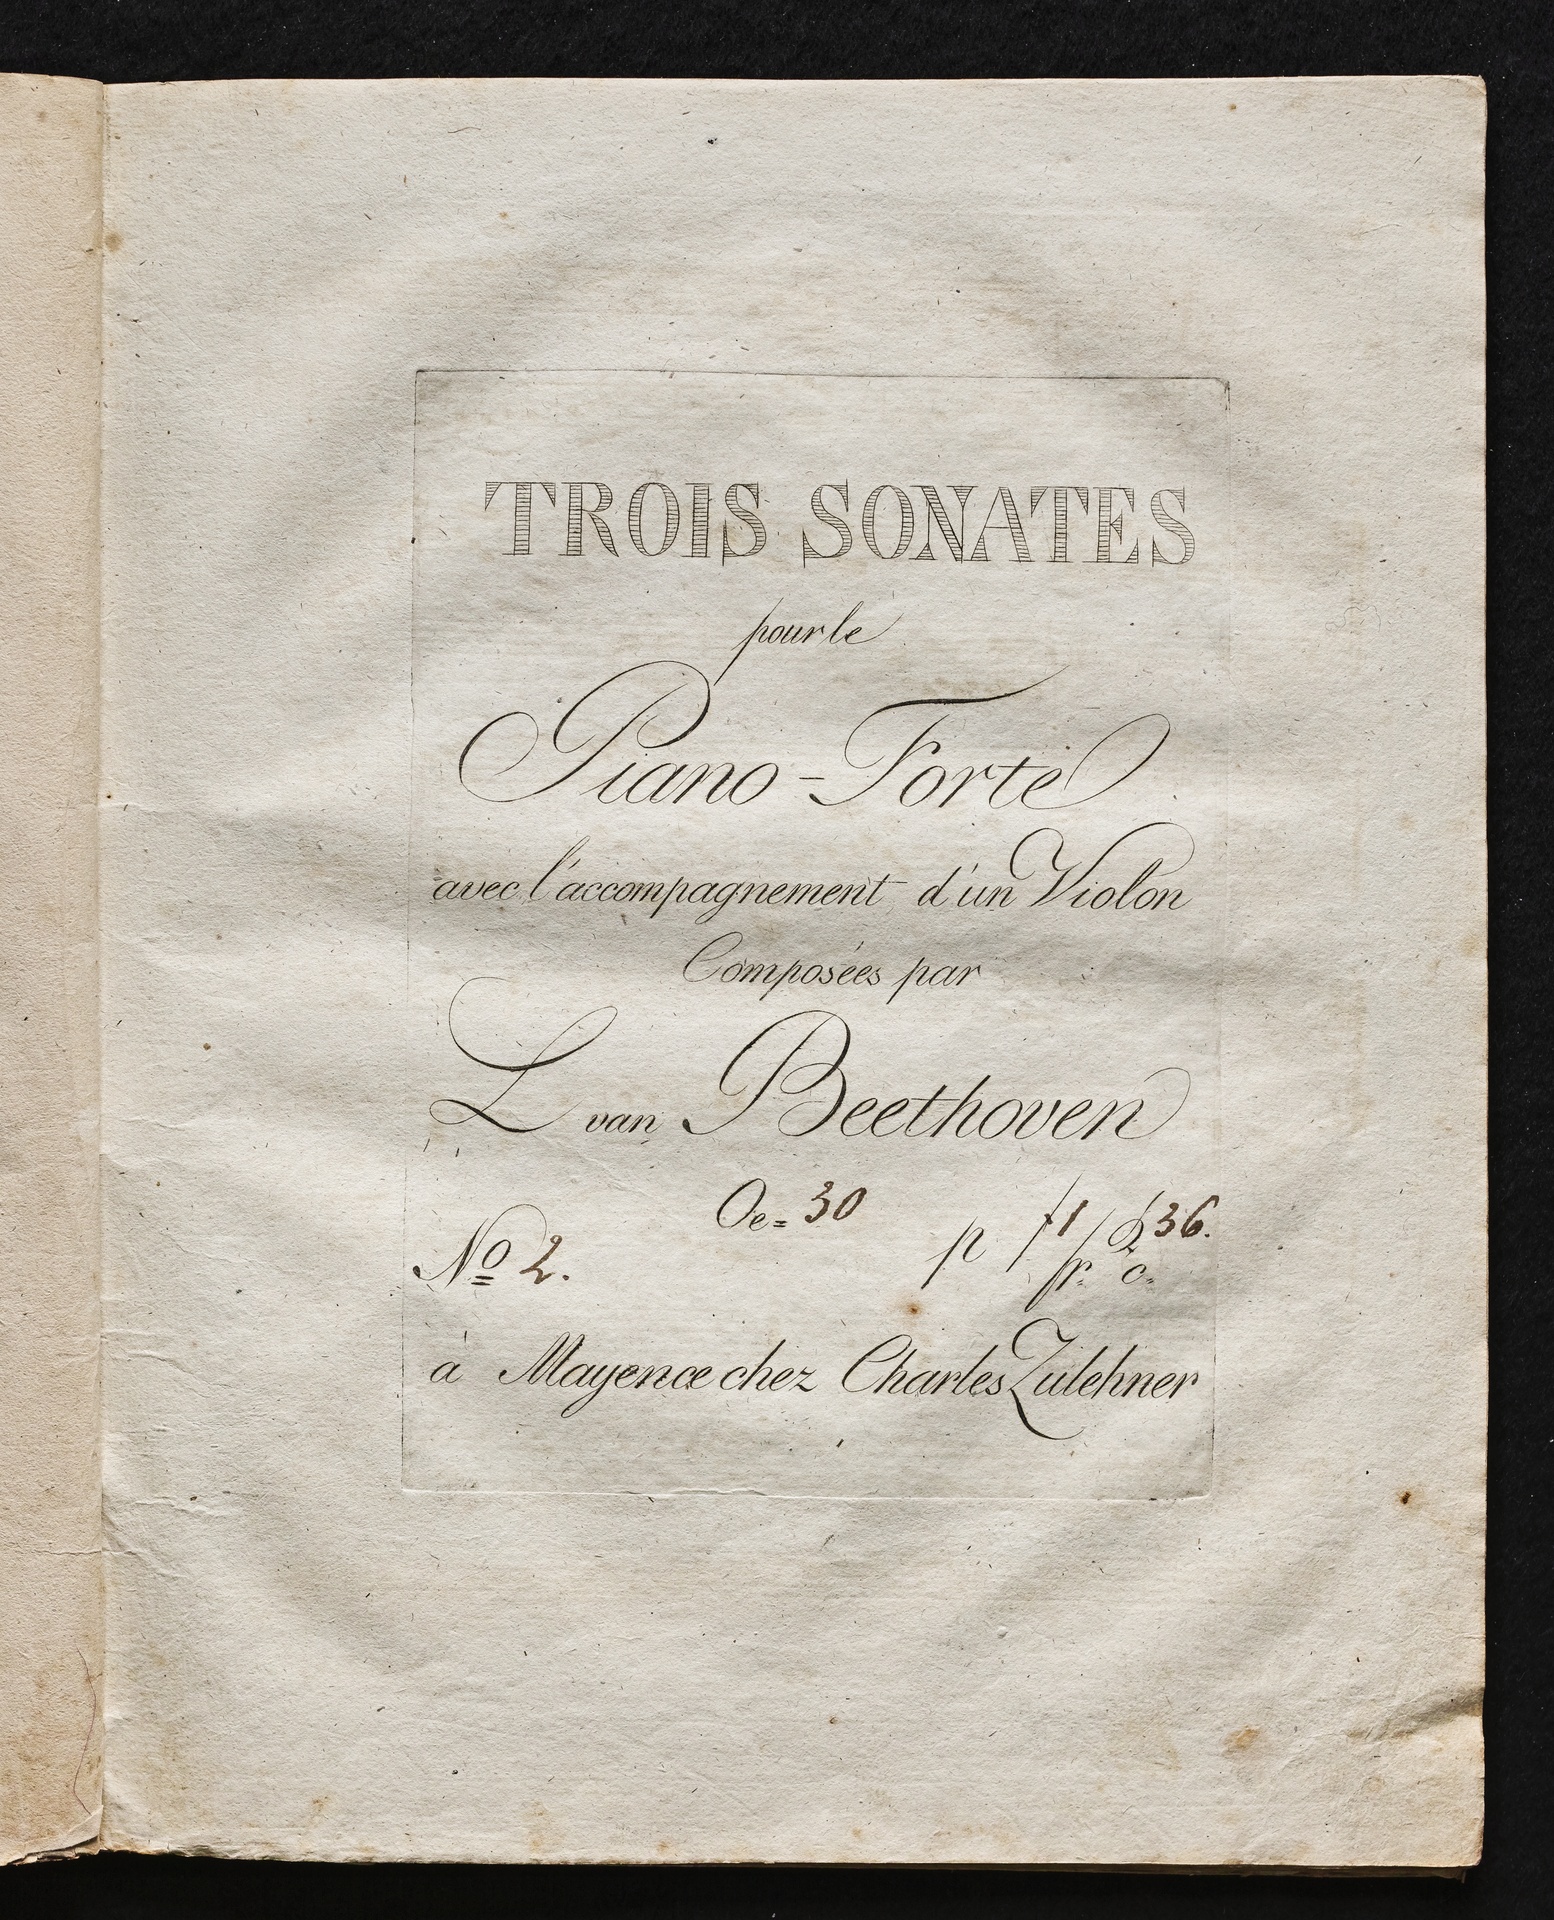 TROIS SONATES
pour le
Piano-Forte
avec l'accompagnement d'un Violon
Composées par
L van Beethoven
Oe= 30
No 2. p f 1 / 36.
fr. c.
à Mayence chez Charles Zulehner